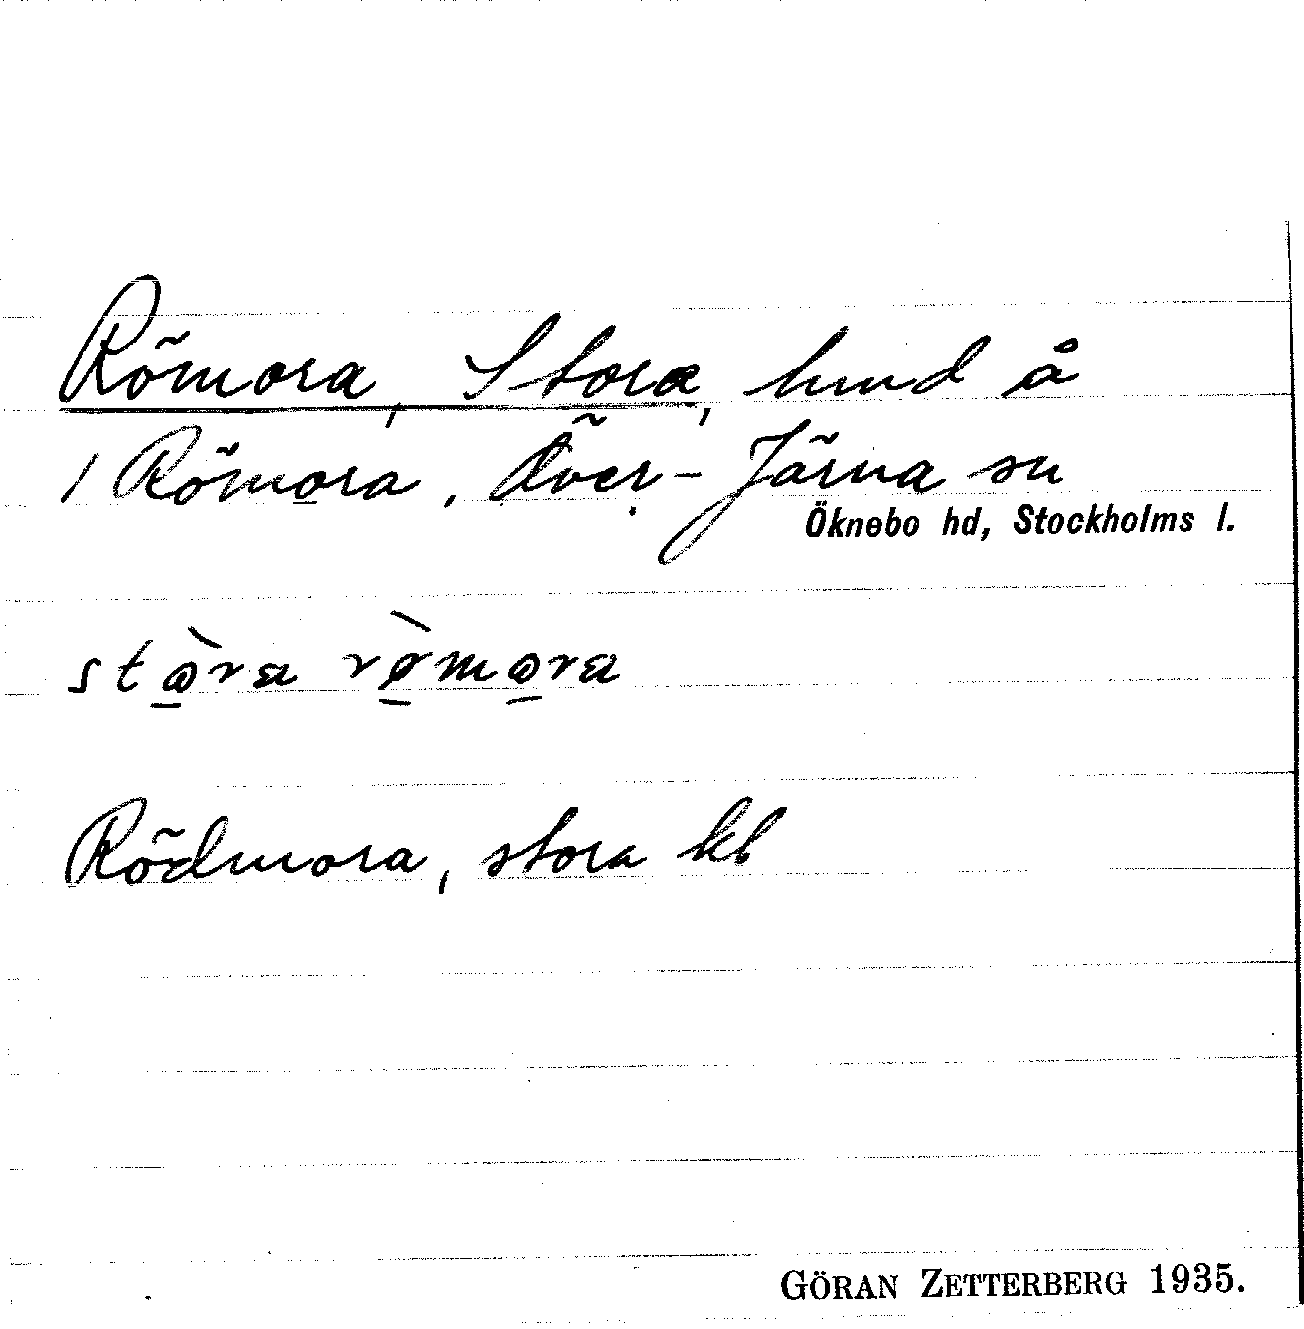 Römora, Stora, hmd å
1 Römora, Över-Järna sn
Öknebo hd, Stockholms l.
stò̱ra rø̱̀mo̱ra
Rödmora, stora kb
GÖRAN ZETTERBERG 1935.